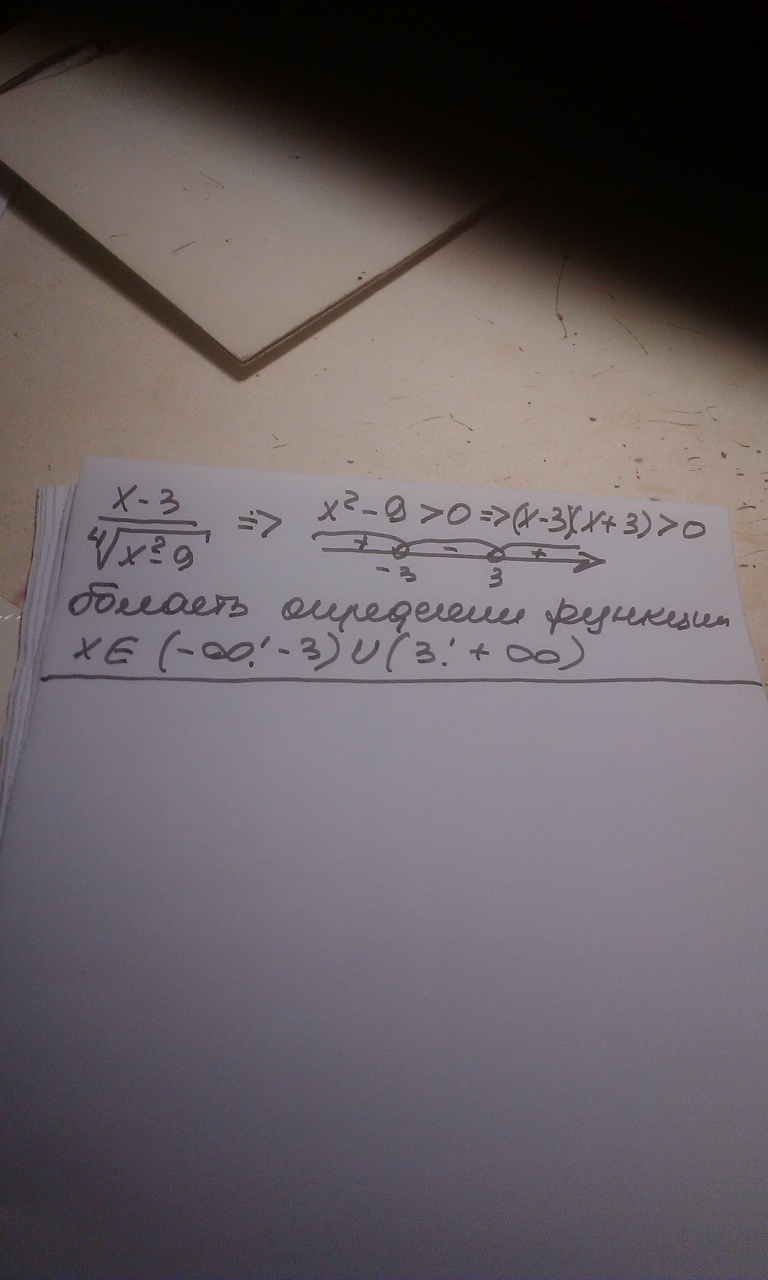 x-3
⁴√x²-9 => x²-9>0=>(x-3)(x+3)>0
+ - +
-3 3
область определения функции
x∈(-∞;-3)∪(3;+∞)